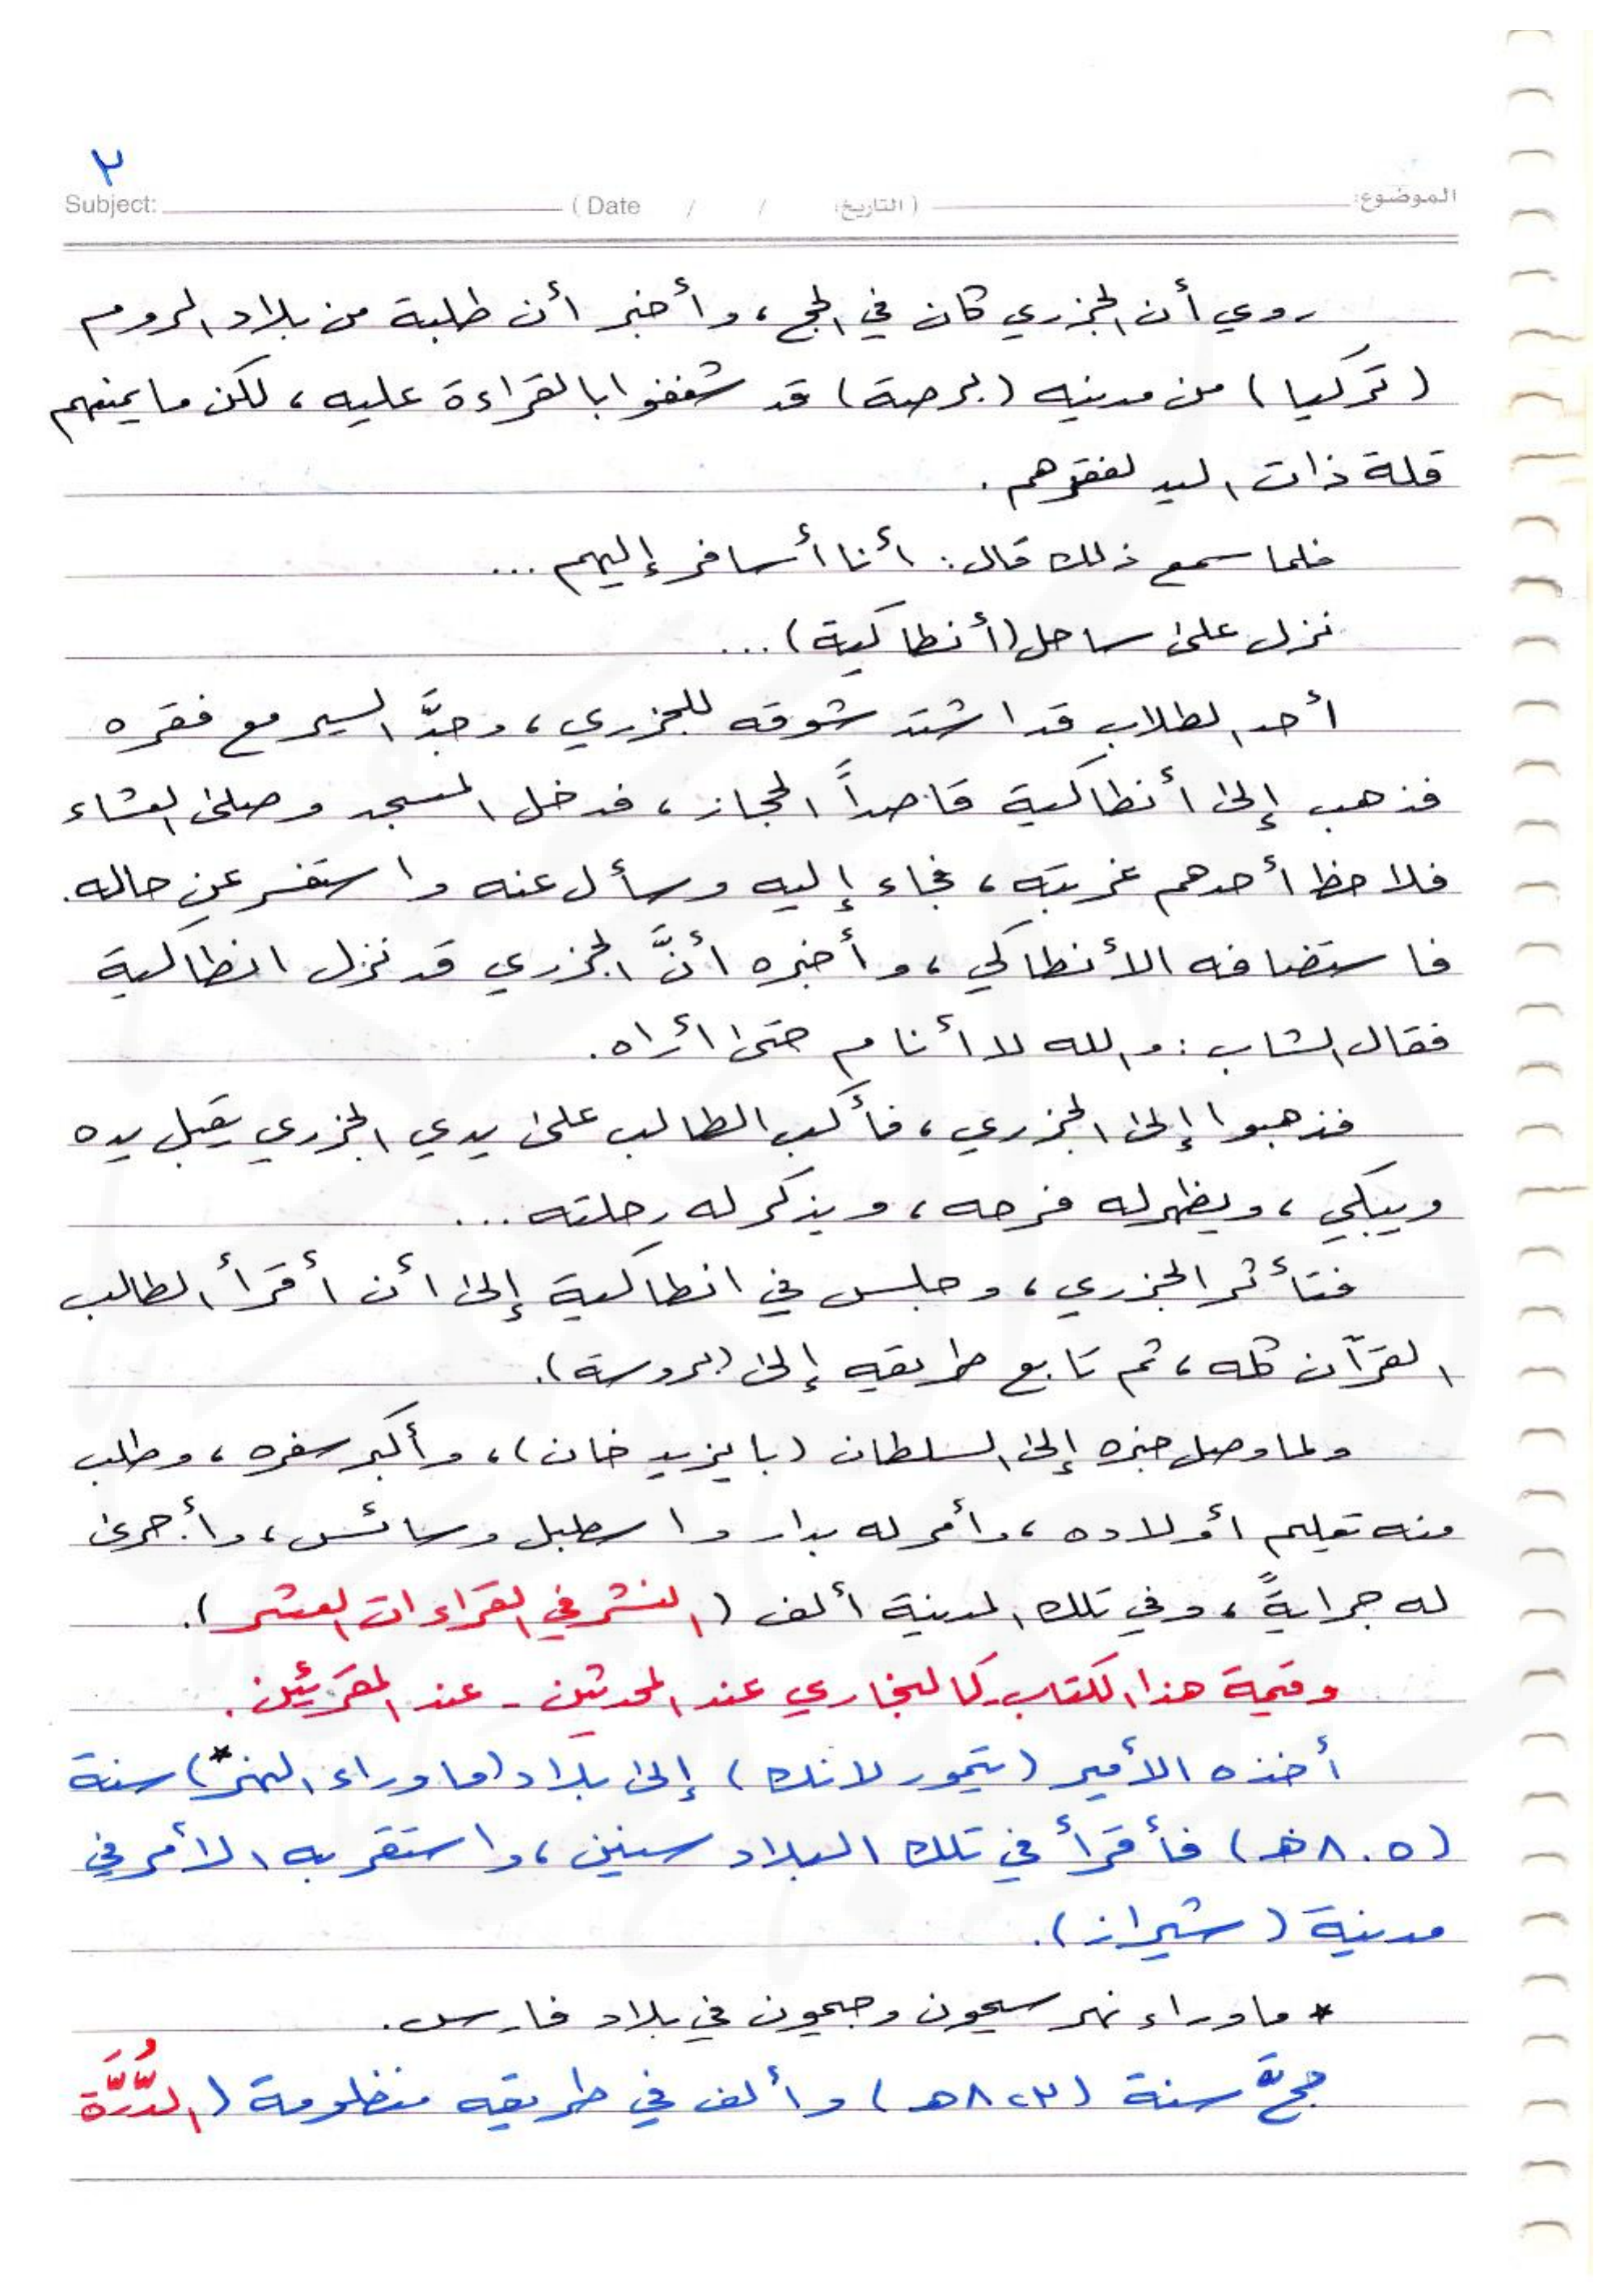 ٢
Subject: ( Date / / التاريخ: ) الموضوع:
روي أن الجزري كان في الحج، وأخبر أن طلبة من بلاد الروم
(تركيا) من مدينه (برصة) قد شغفوا بالقراءة عليه، لكن ما يمنعهم
قلة ذات اليد لفقرهم.
فلما سمع ذلك قال: أنا أسافر إليهم...
نزل على ساحل (أنطاكية)...
أحد الطلاب قد اشتد شوقه للجزري، وجدَّ السير مع فقره
فذهب إلى أنطاكية قاصداً الحجاز، فدخل المسجد وصلى العشاء
فلاحظ أحدهم غربته، فجاء إليه وسأل عنه واستفسر عن حاله.
فاستضافه الأنطاكي، وأخبره أنَّ الجزري قد نزل انطاكية
فقال الشاب: والله لا أنام حتى أراه.
فذهبوا إلى الجزري، فأكب الطالب على يدي الجزري يقبل يده
ويبكي، ويظهر له فرحه، ويذكر له رحلته...
فتأثر الجزري، وجلس في انطاكية إلى أن أقرأ الطالب
القرآن كله، ثم تابع طريقه إلى (بروسة).
ولما وصل خبره إلى السلطان (بايزيد خان)، وأكبر سفره، وطلب
منه تعليم أولاده، وأمر له بدار واسطبل وسائس، وأجرى
له جرايةً، وفي تلك المدينة ألف (النشر في القراءات العشر).
وقيمة هذا الكتاب كالبخاري عند المحدثين - عند المقرئين.
أخذه الأمير (تيمور لانك) إلى بلاد (ما وراء النهر*) سنة
(٨٠٥ هـ) فأقرأ في تلك البلاد سنين، واستقر به الأمر في
مدينة (شيراز).
* ما وراء نهر سيحون وجيحون في بلاد فارس.
حجَّ سنة (٨٢٣ هـ) وألف في طريقه منظومة (الدُّرَّة